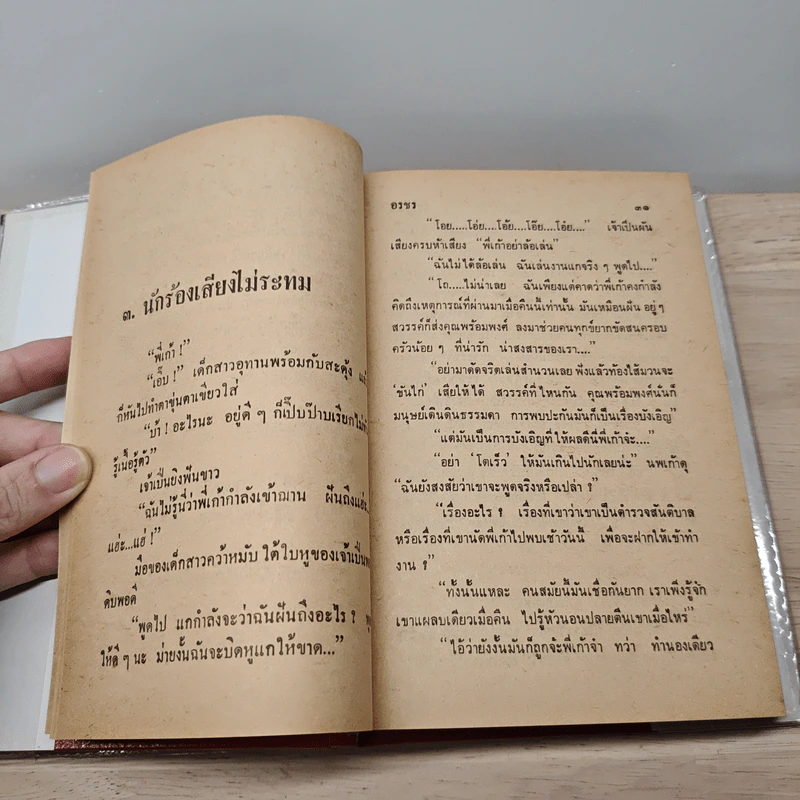 ๓. นักร้องเสียงไม่ระทม
“พี่เก้า !”
“เอ็บ !” เด็กสาวอุทานพร้อมกับสะดุ้ง แล้
ก็หันไปทำตาขุ่นตาเขียวใส่
“บ้า ! อะไรนะ อยู่ดี ๆ ก็เป๊บป๊าบเรียกไม่
รู้เนื้อรู้ตัว”
เจ้าเป็นยิงฟันขาว
“ฉันไม่รู้นี่ว่าพี่เก้ากำลังเข้าฌาน ฝันถึงแฮ่..
แฮ่ะ...แฮ่ !
มือของเด็กสาวคว้าหมับ ใต้ใบหูของเจ้าเป็น
ดิบพอดี
“พูดไป แกกำลังจะว่าฉันฝันถึงอะไร ? พู
ให้ดี ๆ นะ ม่ายงั้นฉันจะบิดหูแกให้ขาด...”
อรชร ๓๑
“โอย.....โอ่ย....โอ้ย....โอ๊ย....โอ๋ย....” เจ้าเป็นผัน
เสียงครบห้าเสียง “พี่เก้าอย่าล้อเล่น”
“ฉันไม่ได้ล้อเล่น ฉันเล่นงานแกจริง ๆ พูดไป....”
“โถ.....ไม่น่าเลย ฉันเพียงแต่คาดว่าพี่เก้าคงกำลัง
คิดถึงเหตุการณ์ที่ผ่านมาเมื่อคืนนี้เท่านั้น มันเหมือนฝัน อยู่ๆ
สวรรค์ก็ส่งคุณพร้อมพงศ์ ลงมาช่วยคนทุกข์ยากขัดสนครอบ
ครัวน้อย ๆ ที่น่ารัก น่าสงสารของเรา....”
“อย่ามาดัดจริตเล่นสำนวนเลย ฟังแล้วท้องไส้มวนจะ
‘ขันไก่’ เสียให้ได้ สวรรค์ที่ไหนกัน คุณพร้อมพงศ์นั่นก็
มนุษย์เดินดินธรรมดา การพบปะกันมันก็เป็นเรื่องบังเอิญ”
“แต่มันเป็นการบังเอิญที่ให้ผลดีนี่พี่เก้าจ๋ะ....”
“อย่า ‘โตเร็ว’ ให้มันเกินไปนักเลยน่ะ” นพเก้าดุ
“ฉันยังสงสัยว่าเขาจะพูดจริงหรือเปล่า ?”
“เรื่องอะไร ? เรื่องที่เขาว่าเขาเป็นตำรวจสันติบาล
หรือเรื่องที่เขานัดพี่เก้าไปพบเช้าวันนี้ เพื่อจะฝากให้เข้าทำ
งาน ?”
“ทั้งนั้นแหละ คนสมัยนี้มันเชื่อกันยาก เราเพิ่งรู้จัก
เขาแผลบเดียวเมื่อคืน ไปรู้หัวนอนปลายตีนเขาเมื่อไหร่”
“ไอ้ว่ายังงั้นมันก็ถูกจ้ะพี่เก้าจ๋า ทว่า ทำนองเดียว